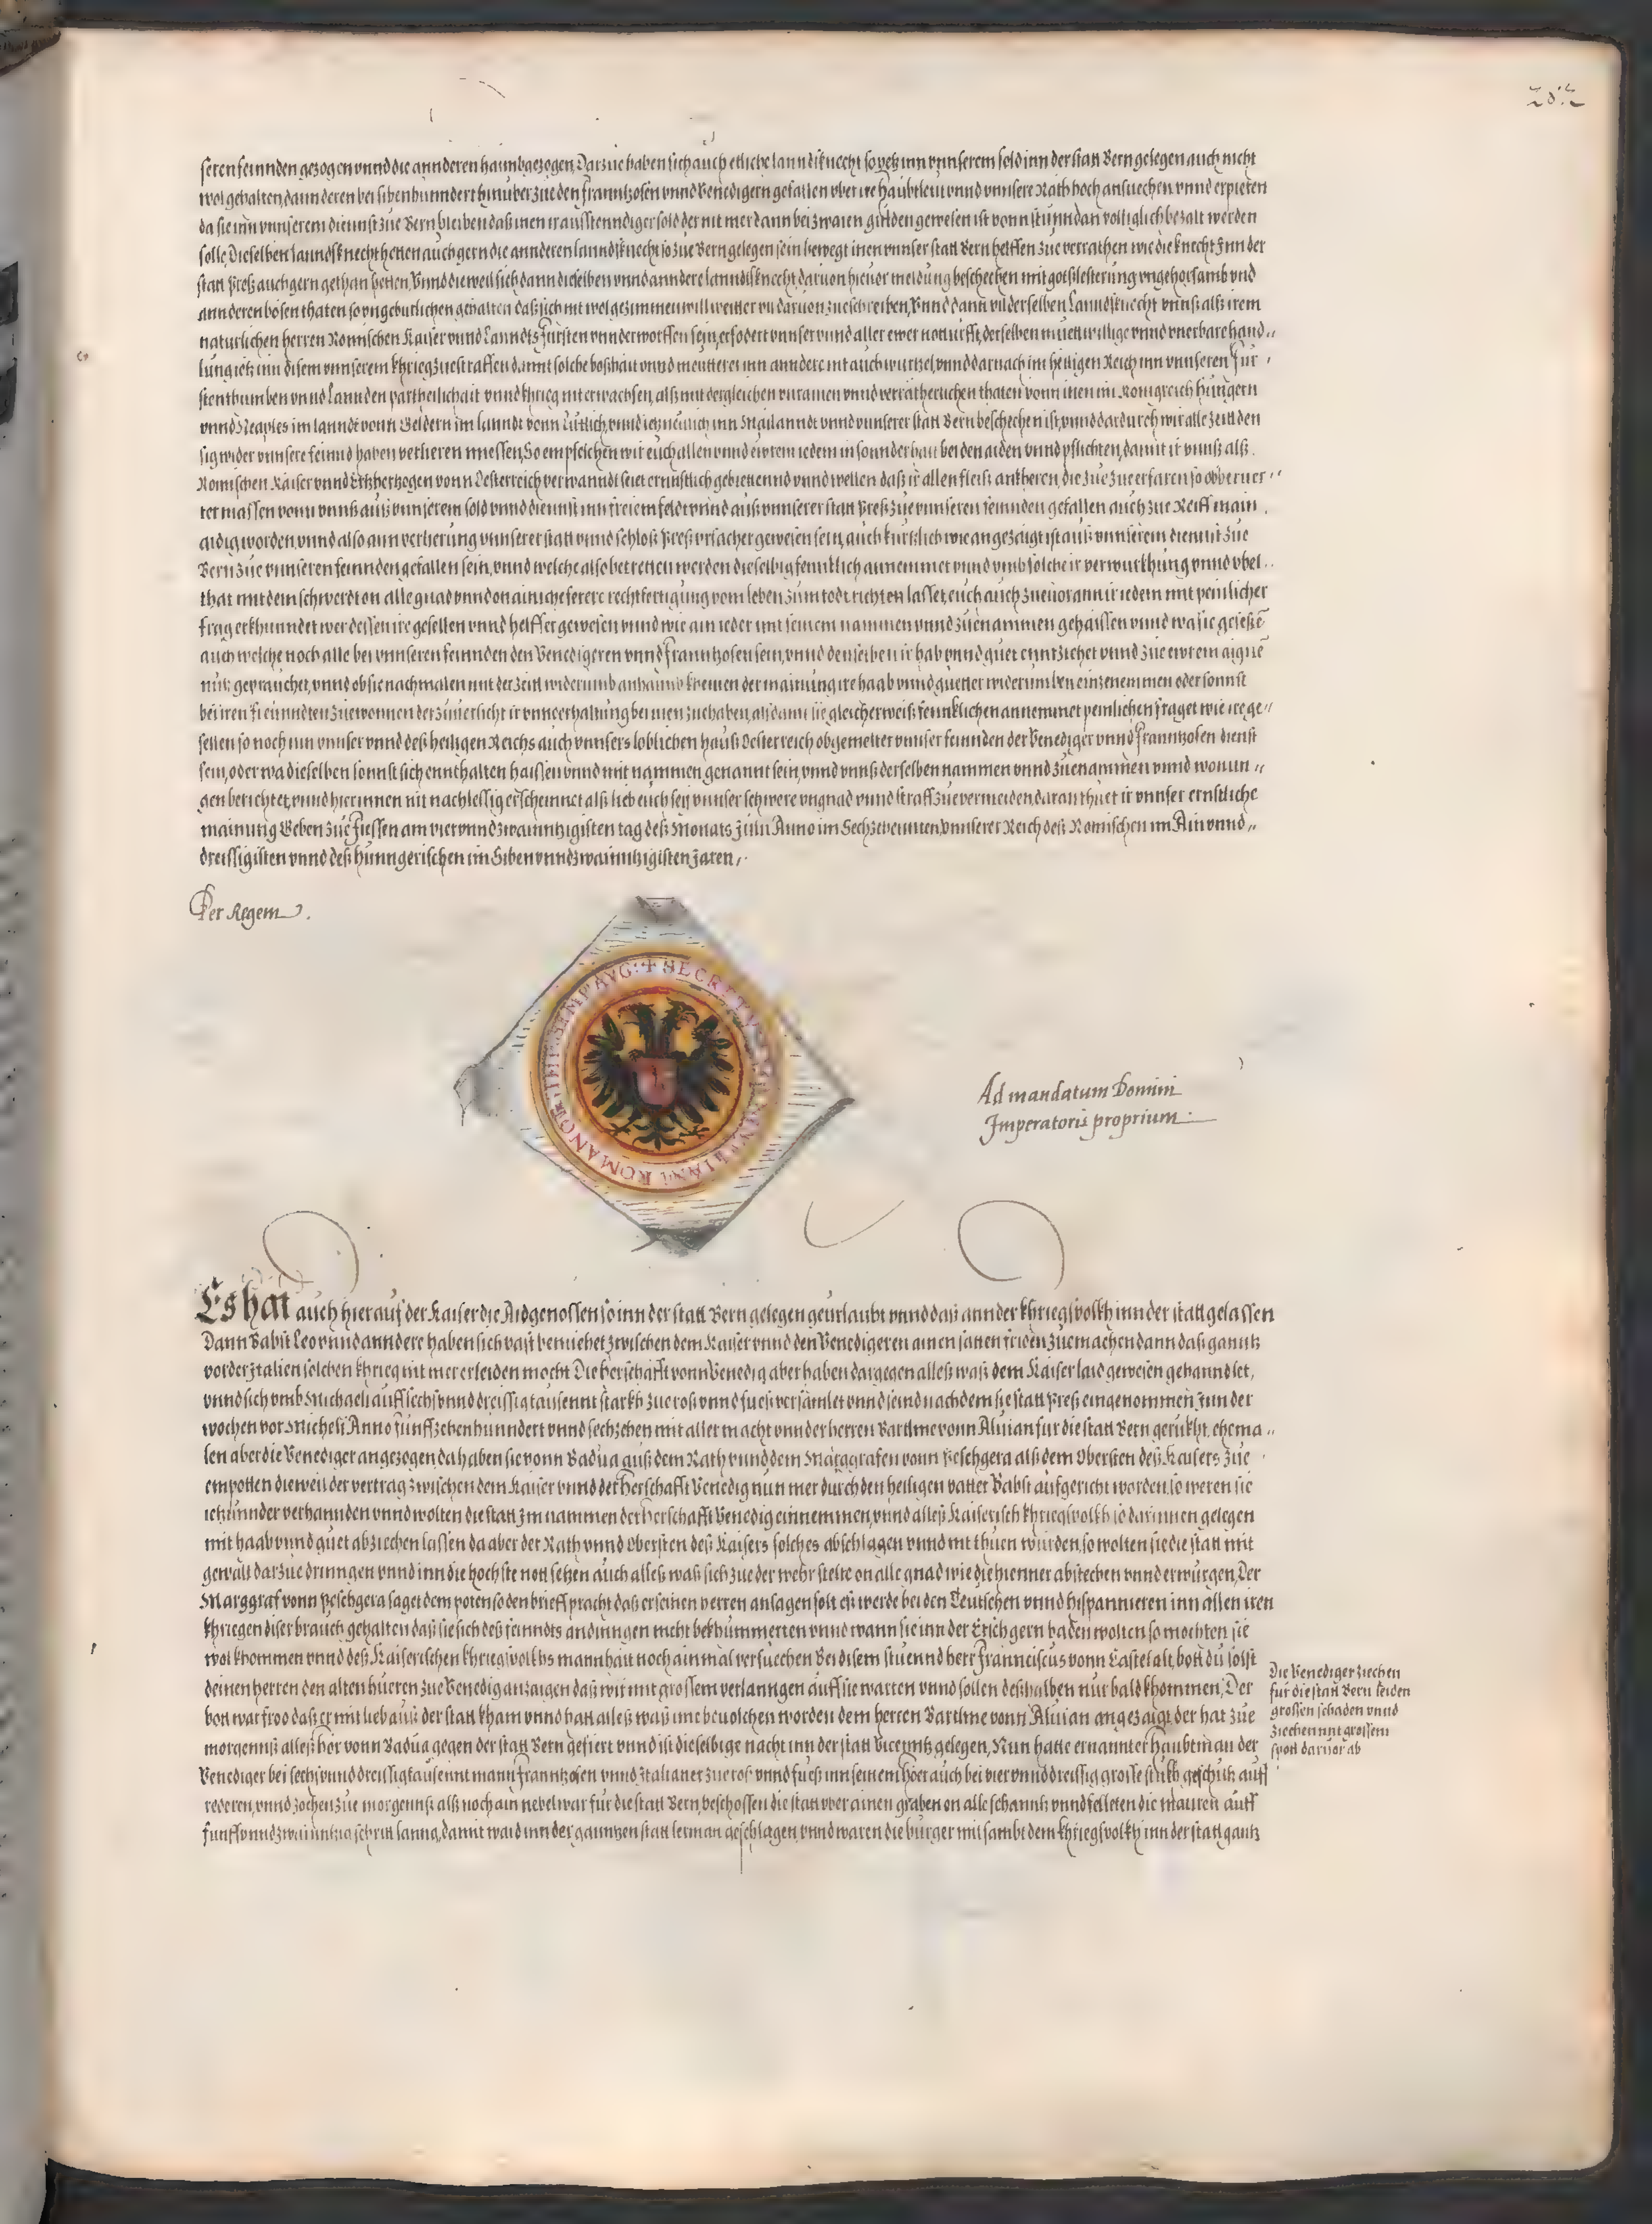 282
seren feinnden gezogen vnnd die annderen haimbgezogen, Darzue haben sich auch etliche lanndsknecht so yetz inn vnnserem sold inn der statt Bern gelegen auch nicht
wol gehalten, dann deren bei sibenhunndert hinuber zue den Frantzosen vnnd Venedigern gefallen vber ire haubtleut vnnd vnnsere Rath hoch ansuechen vnnd erpieten
da sie inn vnnserem diennst zue Bern bleiben daß inen ir ausstenndiger sold der nit mer dann bei zwaien gulden gewesen ist vonn stunndan volliglich bezalt werden
solle, Dieselben lanndsknecht hetten auch gern die annderen lanndsknecht so zue Bern gelegen sein bewegt inen vnnser statt Bern helffen zue verrathen wie die knecht Inn der
statt Preß auch gern gethan hetten, Vnnd dieweil sich dann dieselben vnnd anndere lanndsknecht daruon hieuor meldung beschechen mit gotslesterung vngehorsamb vnd
annderen bosen thaten so vngeburlichen gehalten daß sich nit wol gezimmen will weitter daruon zue schreiben, Vnnd dann vil derselben Lanndsknecht vnnß alß irem
naturlichen herren Romischen Kaiser vnnd Lanndts Fursten vnnderworffen sein, erfodert vnnser vnnd aller ewer notturfft, derselben muettwillige vnnd vnerbare hand„
lung ietz inn disem vnnserem khrieg zue straffen damit solche boßhait vnnd meutterei inn anndere nit auch wurtzel, vnnd darnach im heiligen Reich inn vnnseren Fur„
stenthumben vnnd Lannden partheilichait vnnd khrieg nit erwachsen, alß mit dergleichen vnd verratherischen thaten vonn inen im Konigreich Hungern
vnnd Neaples im lanndt vonn Geldern im lanndt vonn Luttich, vnnd ietz neulich inn Mailanndt vnnd vnnserer statt Bern beschechen ist, vnnd dardurch wir alle zeit den
sig wider vnnsere feinnd haben verlieren muessen, So empfelchen wir euch allen vnnd ewrem iedem in sonnderhait bei den aiden vnnd pflichten, damit ir vnnß alß
Romischen Kaiser vnnd Ertzhertzogen vonn Oesterreich verwanndt seiet ernnstlich gebiettennd vnnd wellen daß ir allen fleiß ankheren, die zue zue erfaren so obberuer„
ter massen vonn vnnß auß vnnserem sold vnnd diennst inn freiem feldt vnnd auß vnnserer statt Preß zue vnnseren feinnden gefallen auch zue Reiff main
aidig worden, vnnd also ann verlierung vnnserer statt vnnd schloß Preß vrsacher gewesen sein, auch kurtzlich wie angezaigt ist auß vnnserem diennst zue
Bern zue vnnseren feinnden gefallen sein, vnnd welche also betretten werden dieselbig fenncklich annemmet vnnd vmb solche ir verwurkhung vnnd vbel„
that mit dem schwerdt on alle gnad vnnd on ainiche ferere rechtfertigung vom leben zum todt richten lasset, euch auch zueuor ann ir iedem mit peinlicher
frag erkhunndet wer dessen ire gesellen vnnd helffer gewesen vnnd wie ain ieder mit seinem nammen vnnd zuenammen gehaissen vnnd wa sie gesessē
auch welche noch alle bei vnnseren feinnden den Venedigeren vnnd Frantzosen sein, vnnd denselben ir hab vnnd guet enntziechet vnnd zue ewrem aignē
nutz geprauchet, vnnd ob sie nachmalen mit der zeitt widerumb anhaimb khemen der mainung ire haab vnnd guetter widerumben einzenemmen oder sonnst
bei iren freunndten zue wonnen der zuuersicht ir vnnderhaltung bei inen zue haben, alsdann sie gleicherweiß fenncklichen annemmet peinlichen fraget wie ire ge„
sellen so noch inn vnnser vnnd deß heiligen Reichs auch vnnsers loblichen hauß Oesterreich obgemelter vnnser feinnden der Venediger vnnd Frantzosen dienst
sein, oder wa dieselben sonnst sich ennthalten haissen vnnd mit nammen genannt sein, vnnd vnnß derselben nammen vnnd zuenammen vnnd wonun„
gen berichtet, vnnd hierinnen nit nachlessig erscheinnet alß lieb euch sey vnnser schwere vngnad vnnd straff zue vermeiden, daran thuet ir vnnser ernstliche
mainung Geben zue Fussen am vierunndzwaintzigisten tag deß Monats Julii Anno im Sechzehennten, vnnserer Reich deß Romischen im Ainvnnd„
dreissigisten vnnd deß hunngerischen im Sibenvnndzwaintzigisten Jaren„
Per Regem.
✝ SECRETV ROMANOR AVG:
Ad mandatum Domini
Imperatoris proprium.
Es hat auch hierauf der Kaiser die Aidgenossen so inn der statt Bern gelegen geurlaubt vnnd das annder khriegsvolkh inn der statt gelassen
Dann Babst Leo vnnd anndere haben sich vast bemiehet zwischen dem Kaiser vnnd den Venedigeren ainen saten friden zue machen dann das ganntz
vorder Italien solchen khrieg nit mer erleiden mocht Die herschafft vonn Venedig aber haben dargegen alleß waß dem Kaiser laid gewesen gehanndlet,
vnnd sich vmb Michaeli auff sechsvnnddreissig tausennt starkh zue roß vnnd fueß versamlet vnnd seind nachdem sie statt Preß eingenommen, Inn der
wochen vor Micheli Anno funffzehenhunndert vnnd sechzehen mit aller macht vnnder herren Bartlme vonn Aluian fur die statt Bern gerukht, ehema„
len aber die Venediger angezogen da haben sie vonn Badua auß dem Rath vnnd dem Marggrafen vonn Peschgera alß dem Obersten deß Kaisers zue
empotten dieweil der vertrag zwischen dem Kaiser vnnd der Herschafft Venedig nun mer durch den heiligen vatter Babst aufgericht worden, so weren sie
ietzunnder verhannden vnnd wolten die statt Im nammen der Herschafft Venedig einnemmen, vnnd alleß Kaiserisch khriegsvolkh so darinnen gelegen
mit haab vnnd guet abziechen lassen da aber der Rath vnnd Obersten deß Kaisers solches abschlagen vnnd nit thuen wurden, so wolten sie die statt mit
gewalt darzue dringen vnnd inn die hochste nott setzen auch alleß waß sich zue der wehr stelte on alle gnad wie die hienner abstechen vnnd erwurgen, Der
Marggraf vonn Peschgera saget dem poten so den brieff pracht daß er seinen herren ansagen solt eß werde bei den Teutschen vnnd Hispannieren inn allen iren
khriegen diser brauch gehalten daß sie sich deß feinndts andringen nicht bekhummerten vnnd wann sie inn der Etsch gern baden wolten so mochten sie
wol khommen vnnd deß Kaiserischen khriegsvolkhs mannhait noch ainmal versuechen Bei disem stuend herr Franciscus vonn Castelalt, bott du solst
deinen herren den alten hueren zue Venedig anzaigen daß wir mit grossem verlanngen auff sie warten vnnd sollen deßhalben nur bald khommen, Der
bott war froo daß er mit lieb auß der statt kham vnnd hatt alleß waß ime beuolchen worden dem herren Bartlme vonn Aluian angezaigt der hat zue
morgennß alleß hör vonn Badua gegen der statt Bern gefiert vnnd ist dieselbige nacht inn der statt Vicenntz gelegen, Nun hatte ernannter haubtman der
Venediger bei sechsvnnddreissig tausennt mann Frantzosen vnnd Italianer zue roß vnnd fueß inn seinem hoer auch bei viervnnddreissig grosse stukh geschutz auff
rederen, vnnd zochen zue morgennß alß noch ain nebel war fur die statt Bern, beschossen die statt vber ainen graben on alle schanntz vnnd felleten die mauren auff
funffvnndzwaintzig schritt lanng, dannt ward inn der ganntzen statt lerman geschlagen, vnnd waren die burger mit sambt dem khriegsvolkh inn der statt gantz
Die Venediger ziechen
fur die statt Bern leiden
grossen schaden vnnd
ziechen mit grossem
spott daruor ab